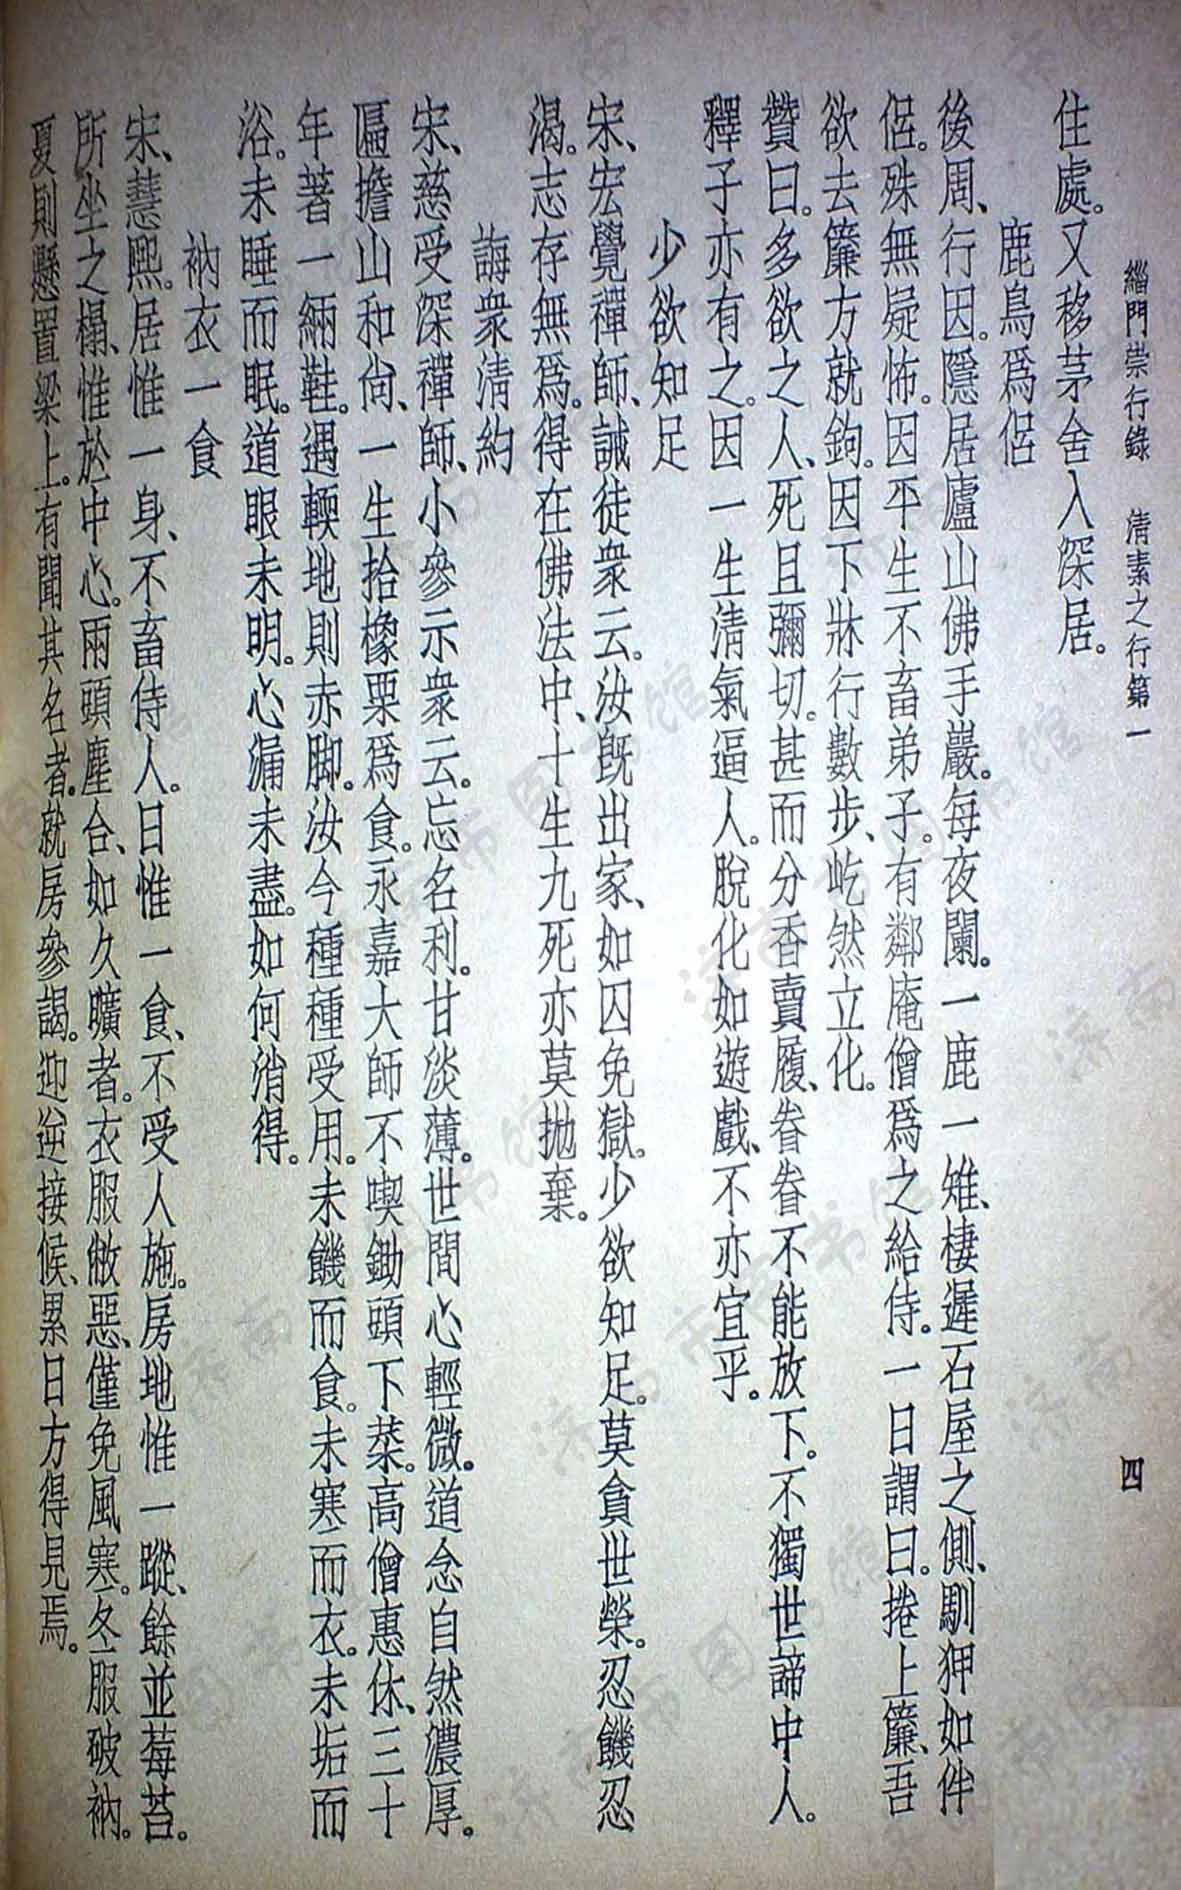 緇門崇行錄　清素之行第一　四
住處。又移茅舍入深居。
鹿鳥爲侶
後周、行因。隱居廬山佛手巖。每夜闌。一鹿一雉、棲遲石屋之側、馴狎如伴
侶。殊無疑怖。因平生不畜弟子。有鄰庵僧爲之給侍。一日謂曰。捲上簾、吾
欲去簾方就鉤。因下牀行數步、屹然立化。
贊曰。多欲之人、死且彌切。甚而分香賣履、眷眷不能放下。不獨世諦中人。
釋子亦有之。因一生清氣逼人。脫化如遊戲、不亦宜乎。
少欲知足
宋、宏覺禪師、誡徒衆云。汝既出家、如囚免獄。少欲知足。莫貪世榮。忍饑忍
渴。志存無爲。得在佛法中、十生九死亦莫拋棄。
誨衆清約
宋、慈受深禪師、小參示衆云。忘名利。甘淡薄。世間心輕微。道念自然濃厚。
匾擔山和尙、一生拾橡栗爲食。永嘉大師不喫鋤頭下菜。高僧惠休、三十
年著一緉鞋。遇輭地則赤脚。汝今種種受用。未饑而食。未寒而衣。未垢而
浴。未睡而眠。道眼未明。心漏未盡。如何消得。
衲衣一食
宋、慧熙。居惟一身、不畜侍人。日惟一食、不受人施。房地惟一蹤、餘並莓苔。
所坐之榻、惟於中心。兩頭塵合、如久曠者。衣服敝惡、僅免風寒。冬服破衲。
夏則懸置梁上。有聞其名者。就房參謁。迎逆接候、累日方得見焉。